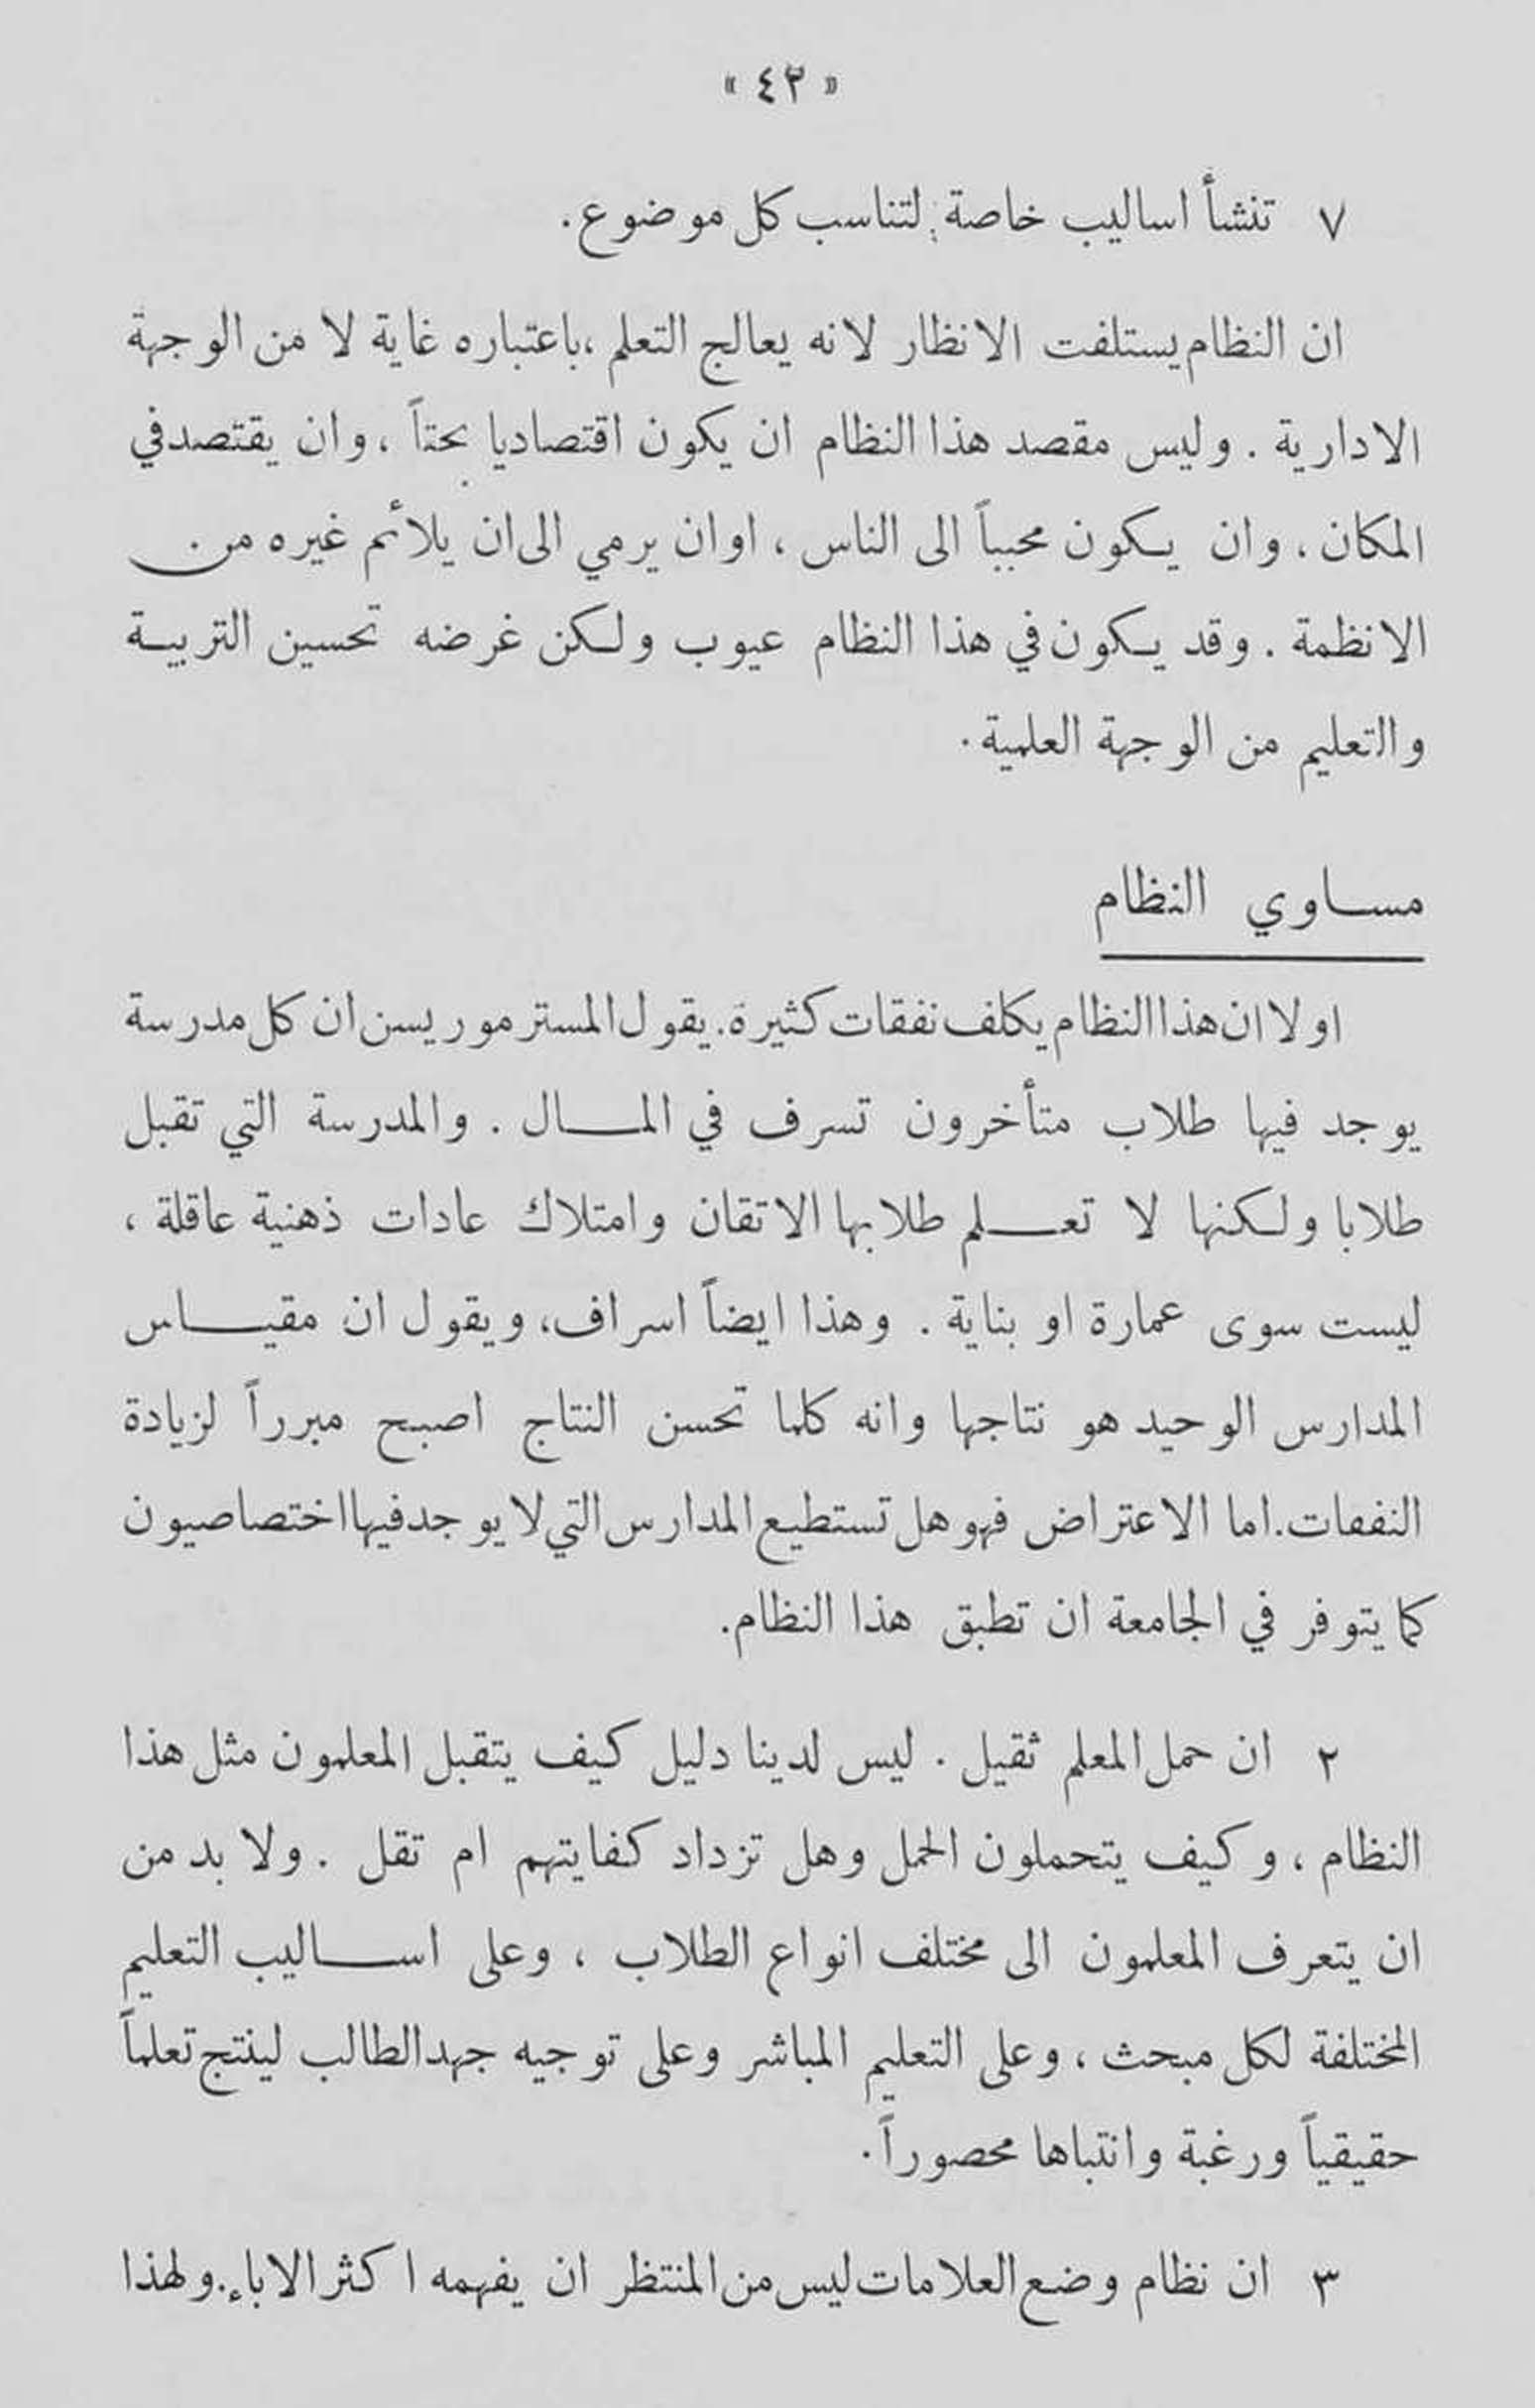 « ٤٢ »
٧ تنشأ اساليب خاصة لتناسب كل موضوع.
ان النظام يستلفت الانظار لانه يعالج التعلم ،باعتباره غاية لا من الوجهة
الادارية . وليس مقصد هذا النظام ان يكون اقتصاديا بحتاً ، وان يقتصد في
المكان ، وان يكون محبباً الى الناس ، او ان يرمي الى ان يلائم غيره من
الانظمة . وقد يكون في هذا النظام عيوب ولكن غرضه تحسين التربية
والتعليم من الوجهة العلمية .
مساوي النظام
اولا ان هذا النظام يكلف نفقات كثيرة. يقول المستر موريسن ان كل مدرسة
يوجد فيها طلاب متأخرون تسرف في المال . والمدرسة التي تقبل
طلابا ولكنها لا تعلم طلابها الاتقان وامتلاك عادات ذهنية عاقلة ،
ليست سوى عمارة او بناية . وهذا ايضاً اسراف، ويقول ان مقياس
المدارس الوحيد هو نتاجها وانه كلما تحسن النتاج اصبح مبرراً لزيادة
النفقات. اما الاعتراض فهو هل تستطيع المدارس التي لا يوجد فيها اختصاصيون
كما يتوفر في الجامعة ان تطبق هذا النظام.
٢ ان حمل المعلم ثقيل . ليس لدينا دليل كيف يتقبل المعلمون مثل هذا
النظام ، وكيف يتحملون الحمل وهل تزداد كفايتهم ام تقل . ولا بد من
ان يتعرف المعلمون الى مختلف انواع الطلاب ، وعلى اساليب التعليم
المختلفة لكل مبحث ، وعلى التعليم المباشر وعلى توجيه جهد الطالب لينتج تعلماً
حقيقياً ورغبة وانتباها محصوراً .
٣ ان نظام وضع العلامات ليس من المنتظر ان يفهمه اكثر الاباء. ولهذا